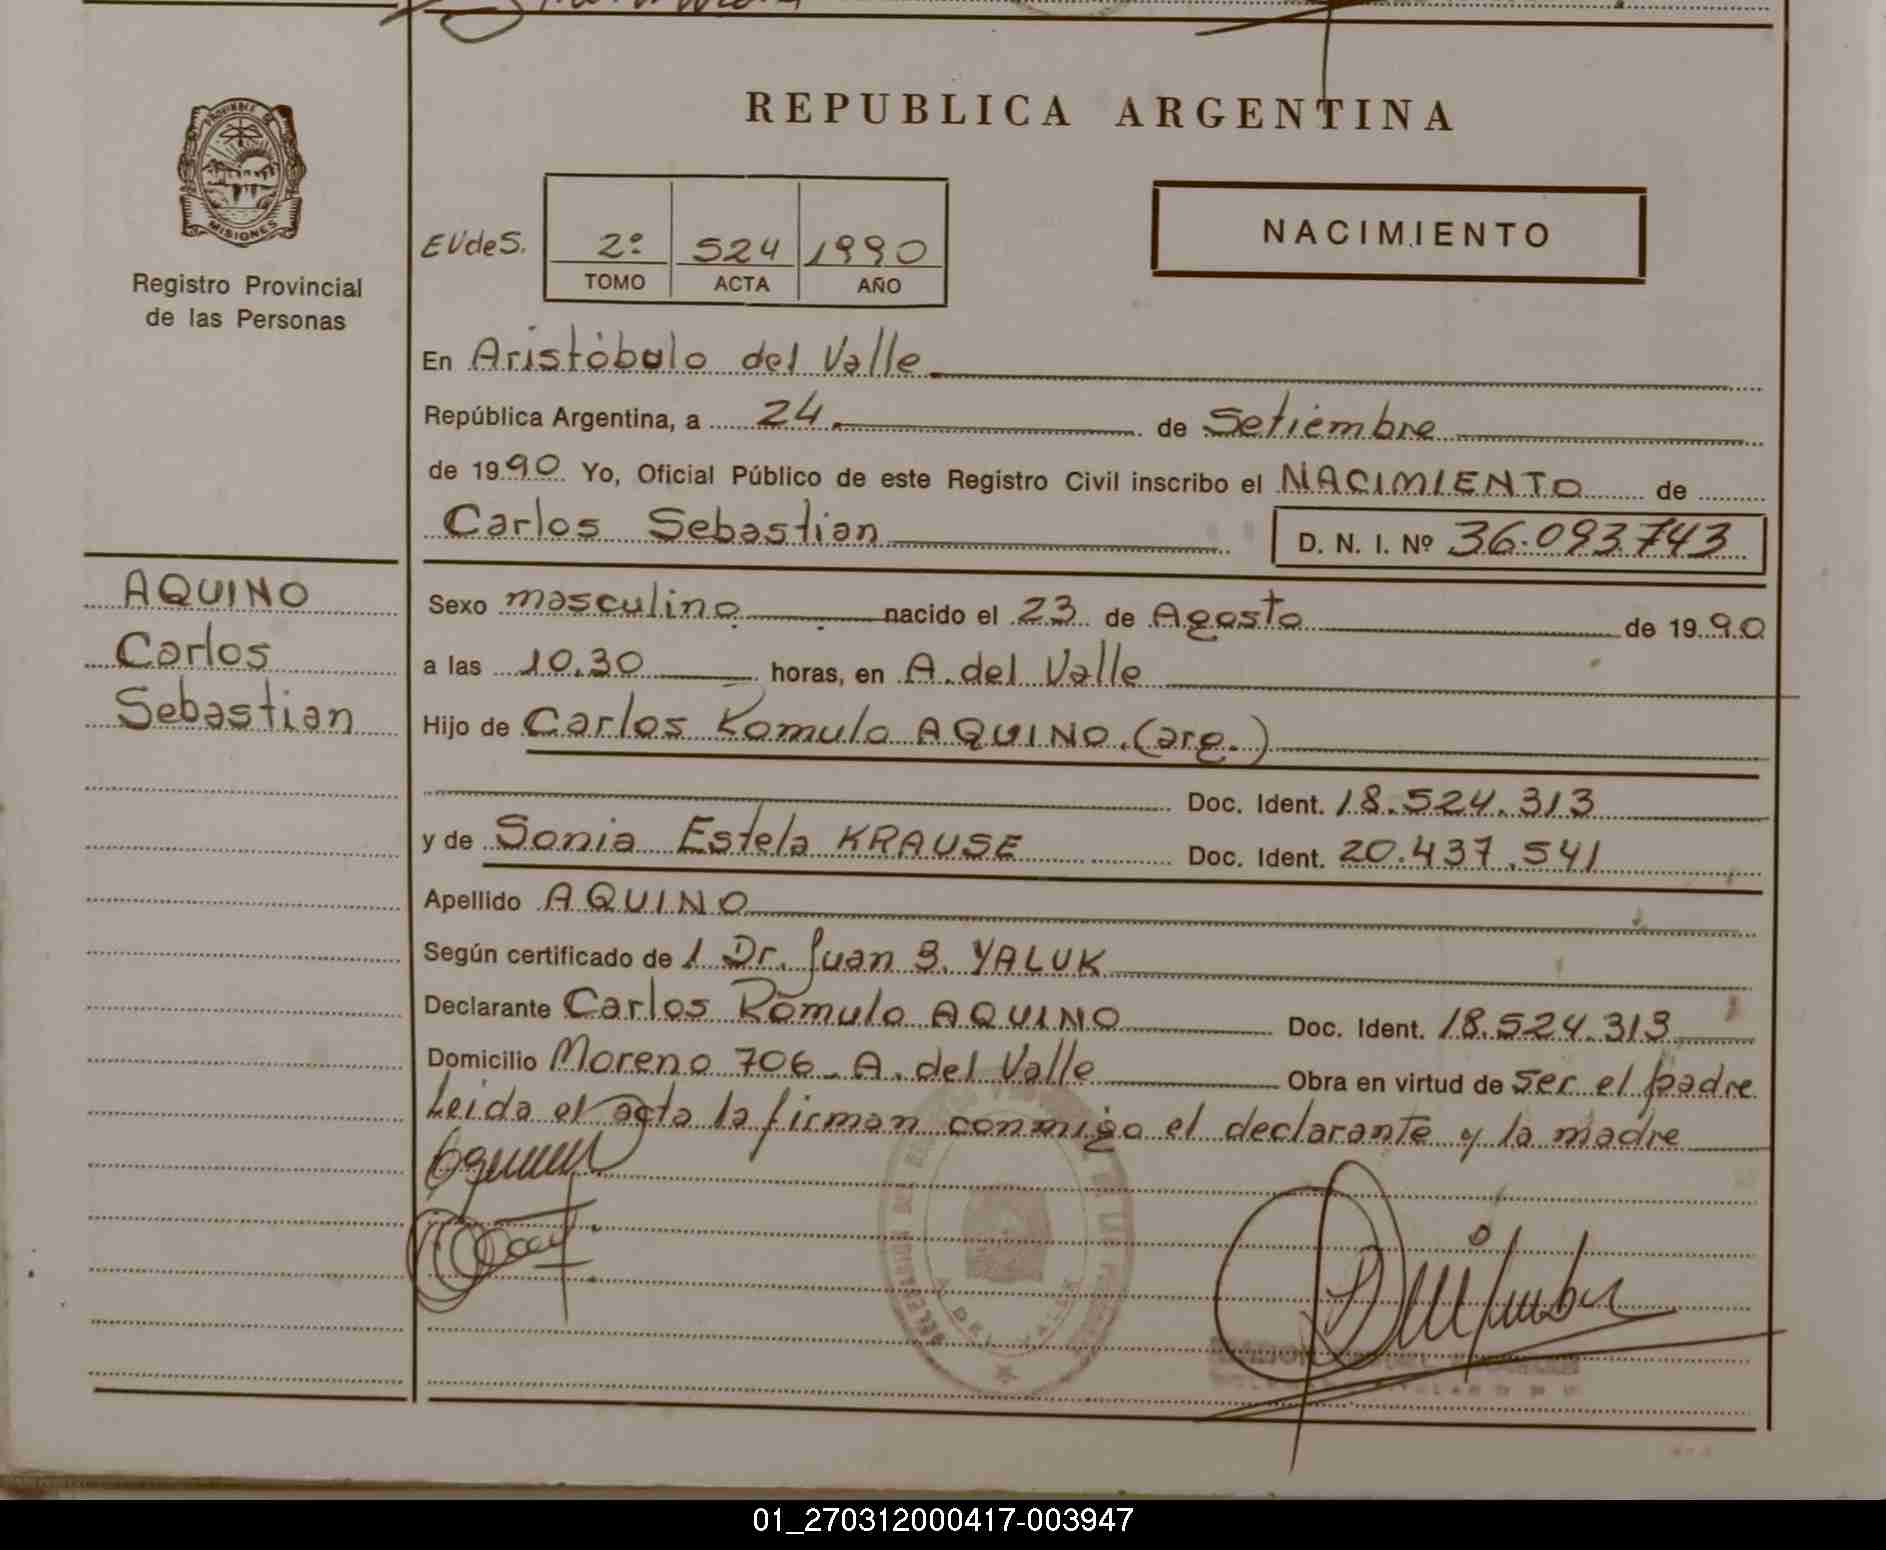 REPUBLICA ARGENTINA
PROVINCIA DE
MISIONES
Registro Provincial
de las Personas
NACIMIENTO
EVdeS. 2º 524 1990
TOMO ACTA AÑO
En Aristóbulo del Valle
República Argentina, a 24 de Setiembre
de 1990 Yo, Oficial Público de este Registro Civil inscribo el NACIMIENTO de
Carlos Sebastian D. N. I. Nº 36.093.743
AQUINO
Carlos
Sebastian
Sexo masculino nacido el 23 de Agosto de 1990
a las 10.30 horas, en A. del Valle
Hijo de Carlos Romulo AQUINO.(arg.)
Doc. Ident. 18.524.313
y de Sonia Estela KRAUSE Doc. Ident. 20.437.541
Apellido AQUINO
Según certificado de 1 Dr. Juan B. YALUK
Declarante Carlos Romulo AQUINO Doc. Ident. 18.524.313
Domicilio Moreno 706. A. del Valle Obra en virtud de ser el padre
Leida el acta la firman conmigo el declarante y la madre
A. DEL VALLE
01_270312000417-003947